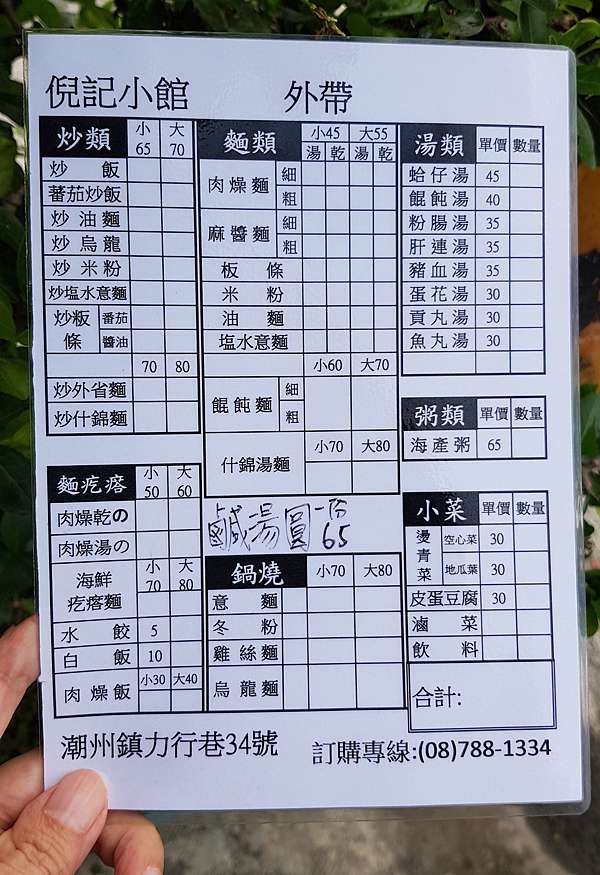 倪記小館 外帶
炒類 小65 大70
炒飯
蕃茄炒飯
炒油麵
炒烏龍
炒米粉
炒塩水意麵
炒粄條 番茄
醬油
70 80
炒外省麵
炒什錦麵
麵疙瘩 小50 大60
肉燥乾の
肉燥湯の
海鮮疙瘩麵 小70 大80
水餃 5
白飯 10
肉燥飯 小30 大40
麵類 小45 大55
湯 乾 湯 乾
肉燥麵 細
粗
麻醬麵 細
粗
板條
米粉
油麵
塩水意麵
小60 大70
餛飩麵 細
粗
小70 大80
什錦湯麵
鹹湯圓 一份 65
鍋燒 小70 大80
意麵
冬粉
雞絲麵
烏龍麵
湯類 單價 數量
蛤仔湯 45
餛飩湯 40
粉腸湯 35
肝連湯 35
豬血湯 35
蛋花湯 30
貢丸湯 30
魚丸湯 30
粥類 單價 數量
海產粥 65
小菜 單價 數量
燙青菜 空心菜 30
地瓜葉 30
皮蛋豆腐 30
滷菜
飲料
合計:
潮州鎮力行巷34號 訂購專線:(08)788-1334